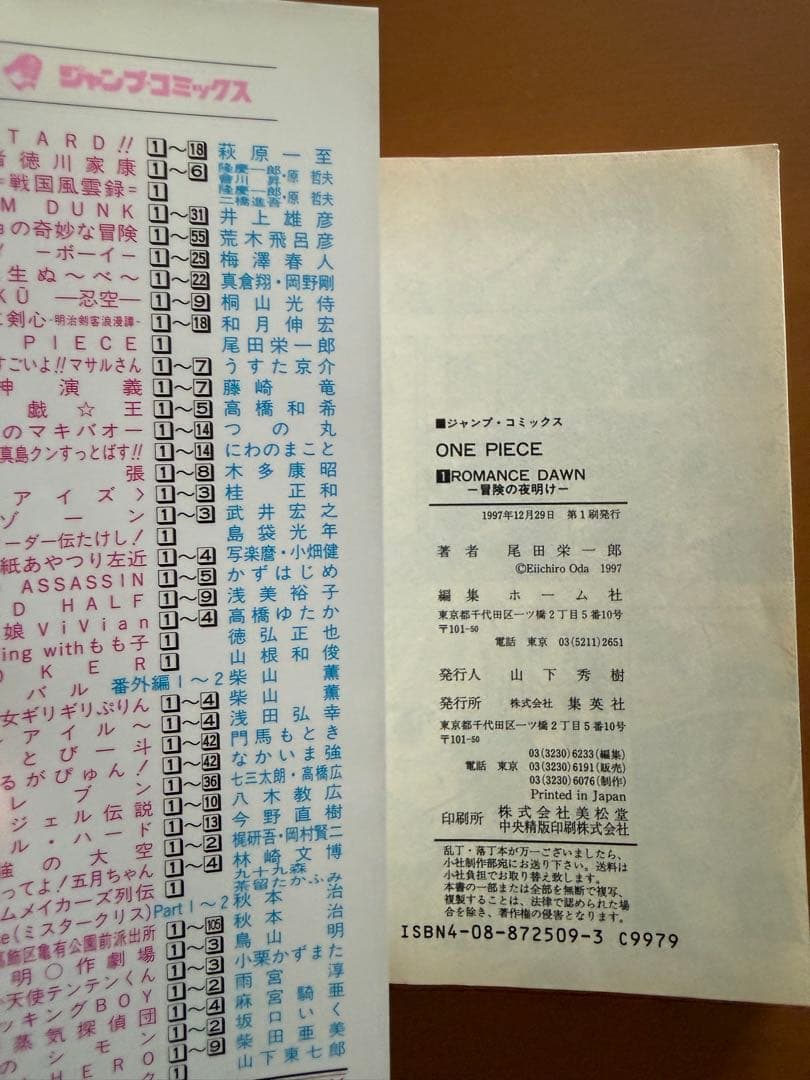 ジャンプ・コミックス
TARD!! 1～18 萩原一至
徳川家康 1～6 隆慶一郎・會川昇・原哲夫
=戦国風雲録= 1 隆慶一郎・二橋進吾・原哲夫
M DUNK 1～31 井上雄彦
の奇妙な冒険 1～55 荒木飛呂彦
ーボーイー 1～25 梅澤春人
生ぬ～べ～ 1～22 真倉翔・岡野剛
KŪ ―忍空― 1～9 桐山光侍
剣心-明治剣客浪漫譚- 1～18 和月伸宏
PIECE 1 尾田栄一郎
すごいよ!!マサルさん 1～7 うすた京介
神演義 1～7 藤崎竜
戯☆王 1～5 高橋和希
のマキバオー 1～14 つの丸
真島クンすっとばす!! 1～14 にわのまこと
張 1～8 木多康昭
アイズ〉 1～3 桂正和
ゾーン 1～3 武井宏之
ーダー伝たけし! 1 島袋光年
紙あやつり左近 1～4 写楽麿・小畑健
ASSASSIN 1～5 かずはじめ
D HALF 1～9 浅美裕子
娘ViVian 1～4 高橋ゆたか
ing withもも子 1 徳弘正也
OKER 1 山根和俊
バル 番外編1～2 柴山薫
女ギリギリぷりん 1～4 柴山薫
アイル～ 1～4 浅田弘幸
とび一斗 1～42 門馬もとき
るがぴゅん! 1～42 なかいま強
レブン 1～36 七三太朗・高橋広
ジェル伝説 1～10 八木教広
ル・ハード 1～13 今野直樹
強の大空 1～2 梶研吾・岡村賢二
ってよ!五月ちゃん 1～4 林崎文博
ムメイカーズ列伝 九十九森 茶留たかふみ
e(ミスタークリス) Part1～2 秋本治
葛飾区亀有公園前派出所 1～105 秋本治
明〇作劇場 1～3 鳥山明
天使テンテンくん 1～3 小栗かずまた
ッキングBOY 1～2 雨宮淳
蒸気探偵団 1～4 麻宮騎亜
のシモン 1～2 坂口いく
HERO 1～9 柴田亜美
ク 1 山下東七郎
■ジャンプ・コミックス
ONE PIECE
1 ROMANCE DAWN
―冒険の夜明け―
1997年12月29日 第1刷発行
著者 尾田栄一郎
©Eiichiro Oda 1997
編集 ホーム社
東京都千代田区一ツ橋2丁目5番10号
〒101-50
電話 東京 03(5211)2651
発行人 山下秀樹
発行所 株式会社 集英社
東京都千代田区一ツ橋2丁目5番10号
〒101-50
03(3230)6233(編集)
電話 東京 03(3230)6191(販売)
03(3230)6076(制作)
Printed in Japan
印刷所 株式会社美松堂
中央精版印刷株式会社
乱丁・落丁本が万一ございましたら、
小社制作部宛にお送り下さい。送料は
小社負担でお取り替え致します。
本書の一部または全部を無断で複写、
複製することは、法律で認められた場
合を除き、著作権の侵害となります。
ISBN4-08-872509-3 C9979